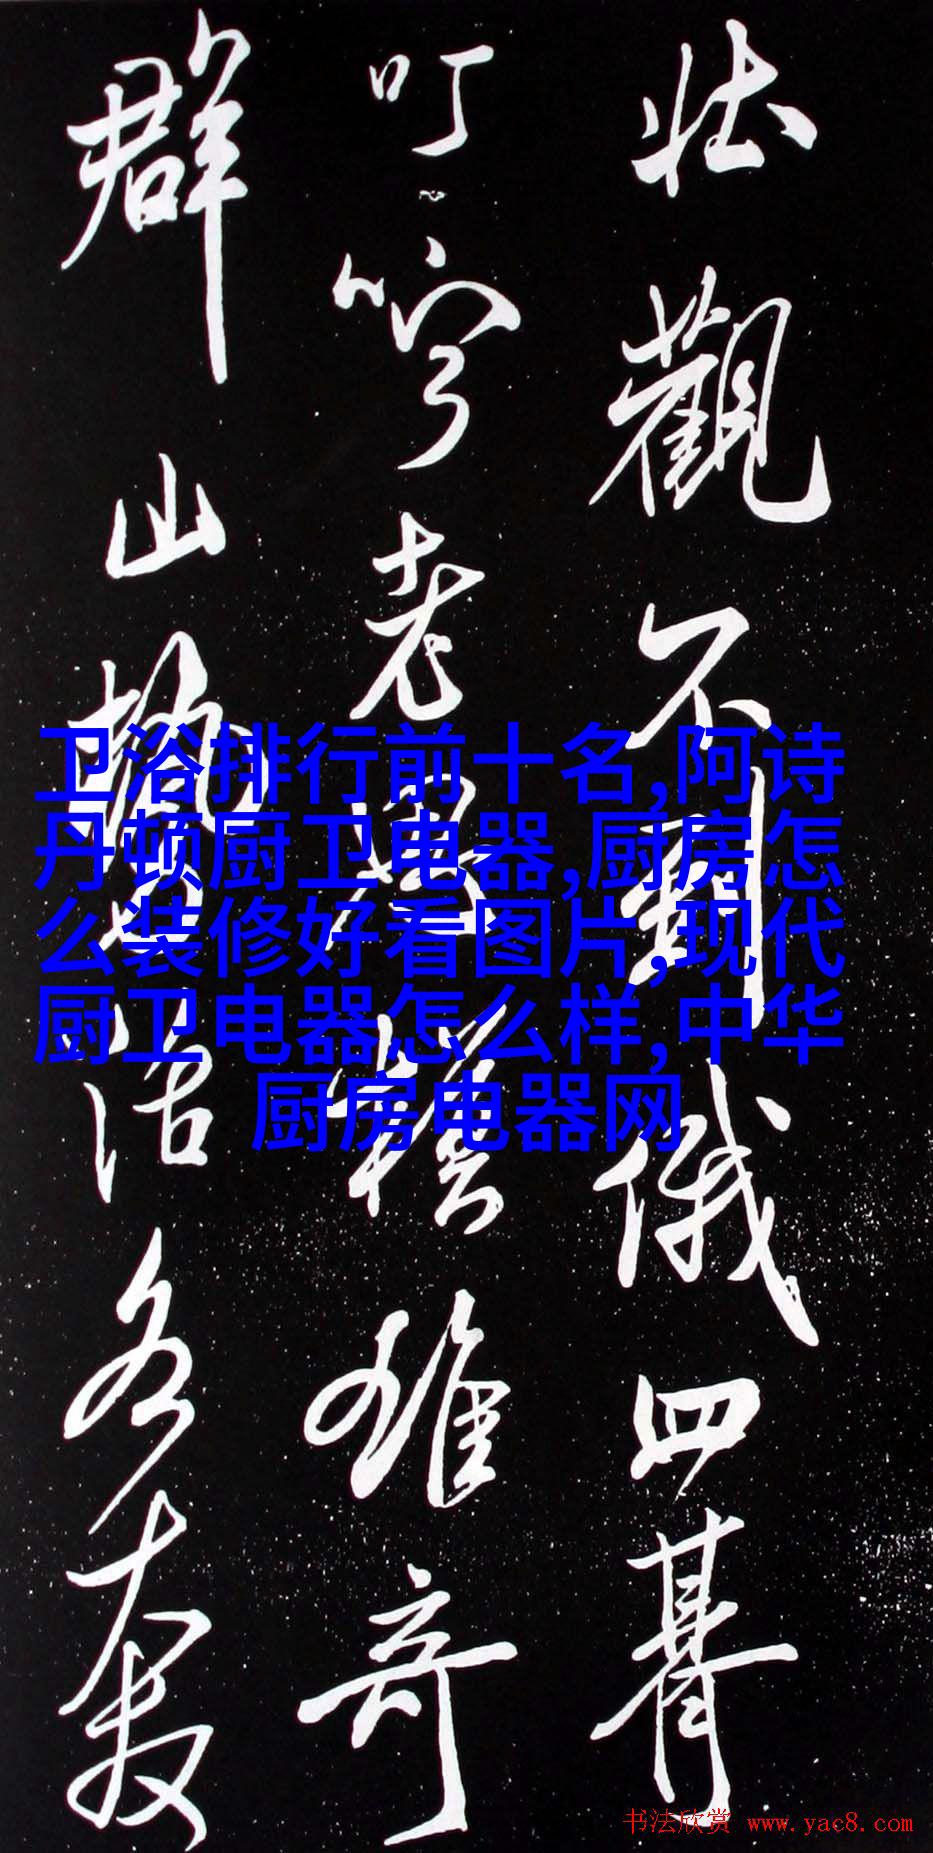 壮觀不俄四
叮嚀老與雄奇
群山勢活各
卫浴排行前十名,阿诗
丹顿厨卫电器,厨房怎
么装修好看图片,现代
厨卫电器怎么样,中华
厨房电器网
书法欣赏 www.yac8.com